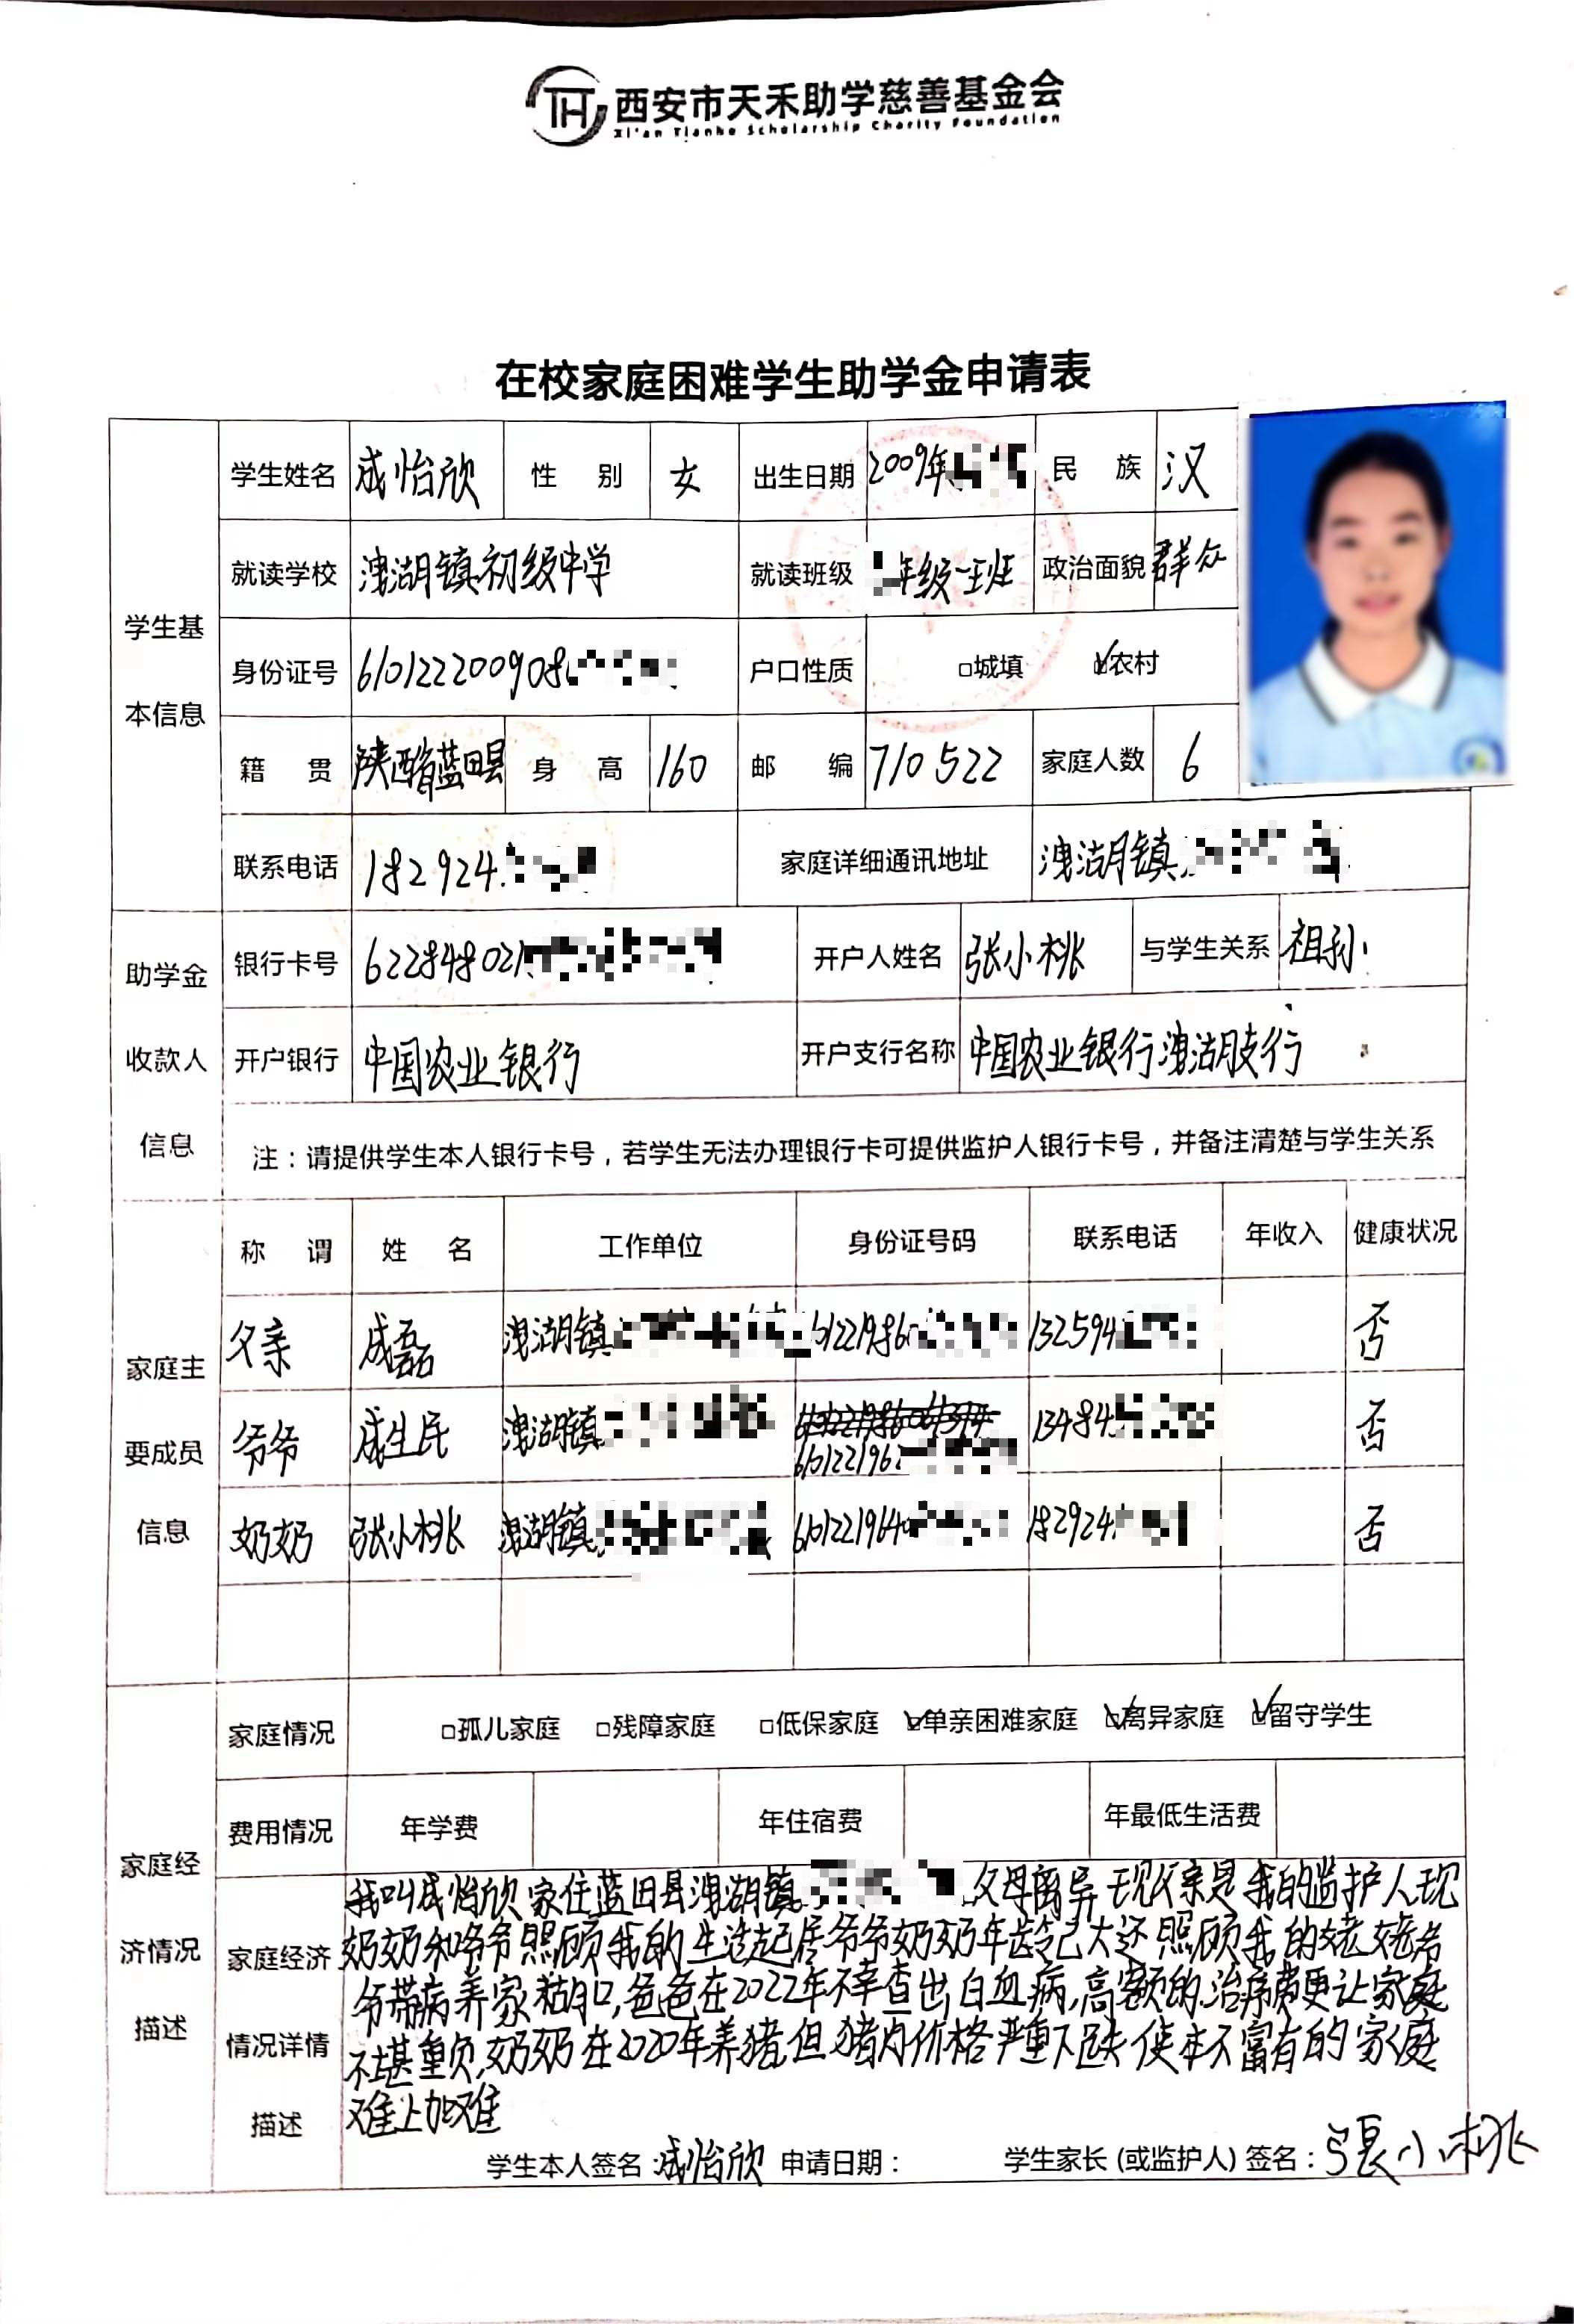 西安市天禾助学慈善基金会
Xi'an Tianhe Scholarship Charity Foundation
在校家庭困难学生助学金申请表
学生基本信息
学生姓名 成怡欣 性 别 女 出生日期 2009年 民 族 汉
就读学校 洩湖镇初级中学 就读班级 年级一班 政治面貌 群众
身份证号 610122200908 户口性质 □城填 ☑农村
籍 贯 陕西省蓝田县 身 高 160 邮 编 710522 家庭人数 6
联系电话 182924 家庭详细通讯地址 洩湖镇
助学金收款人信息
银行卡号 622848021 开户人姓名 张小桃 与学生关系 祖孙
开户银行 中国农业银行 开户支行名称 中国农业银行洩湖支行
注：请提供学生本人银行卡号，若学生无法办理银行卡可提供监护人银行卡号，并备注清楚与学生关系
家庭主要成员信息
称 谓 姓 名 工作单位 身份证号码 联系电话 年收入 健康状况
父亲 成磊 洩湖镇 132594 否
爷爷 成生民 洩湖镇 610122196 13484 否
奶奶 张小桃 洩湖镇 6101221964 182924 否
家庭经济情况描述
家庭情况 □孤儿家庭 □残障家庭 □低保家庭 ☑单亲困难家庭 ☑离异家庭 ☑留守学生
费用情况 年学费 年住宿费 年最低生活费
家庭经济情况详情描述
我叫成怡欣家住蓝田县洩湖镇 父母离异现父亲是我的监护人现
奶奶和爷爷照顾我的生活起居爷爷奶奶年龄已大还照顾我的姥姥爷
爷带病养家糊口,爸爸在2022年不幸查出白血病,高额的治疗费更让家庭
不堪重负,奶奶在2020年养猪,但猪肉价格严重下跌使本不富有的家庭
难上加难
学生本人签名：成怡欣 申请日期： 学生家长 (或监护人) 签名：張小桃